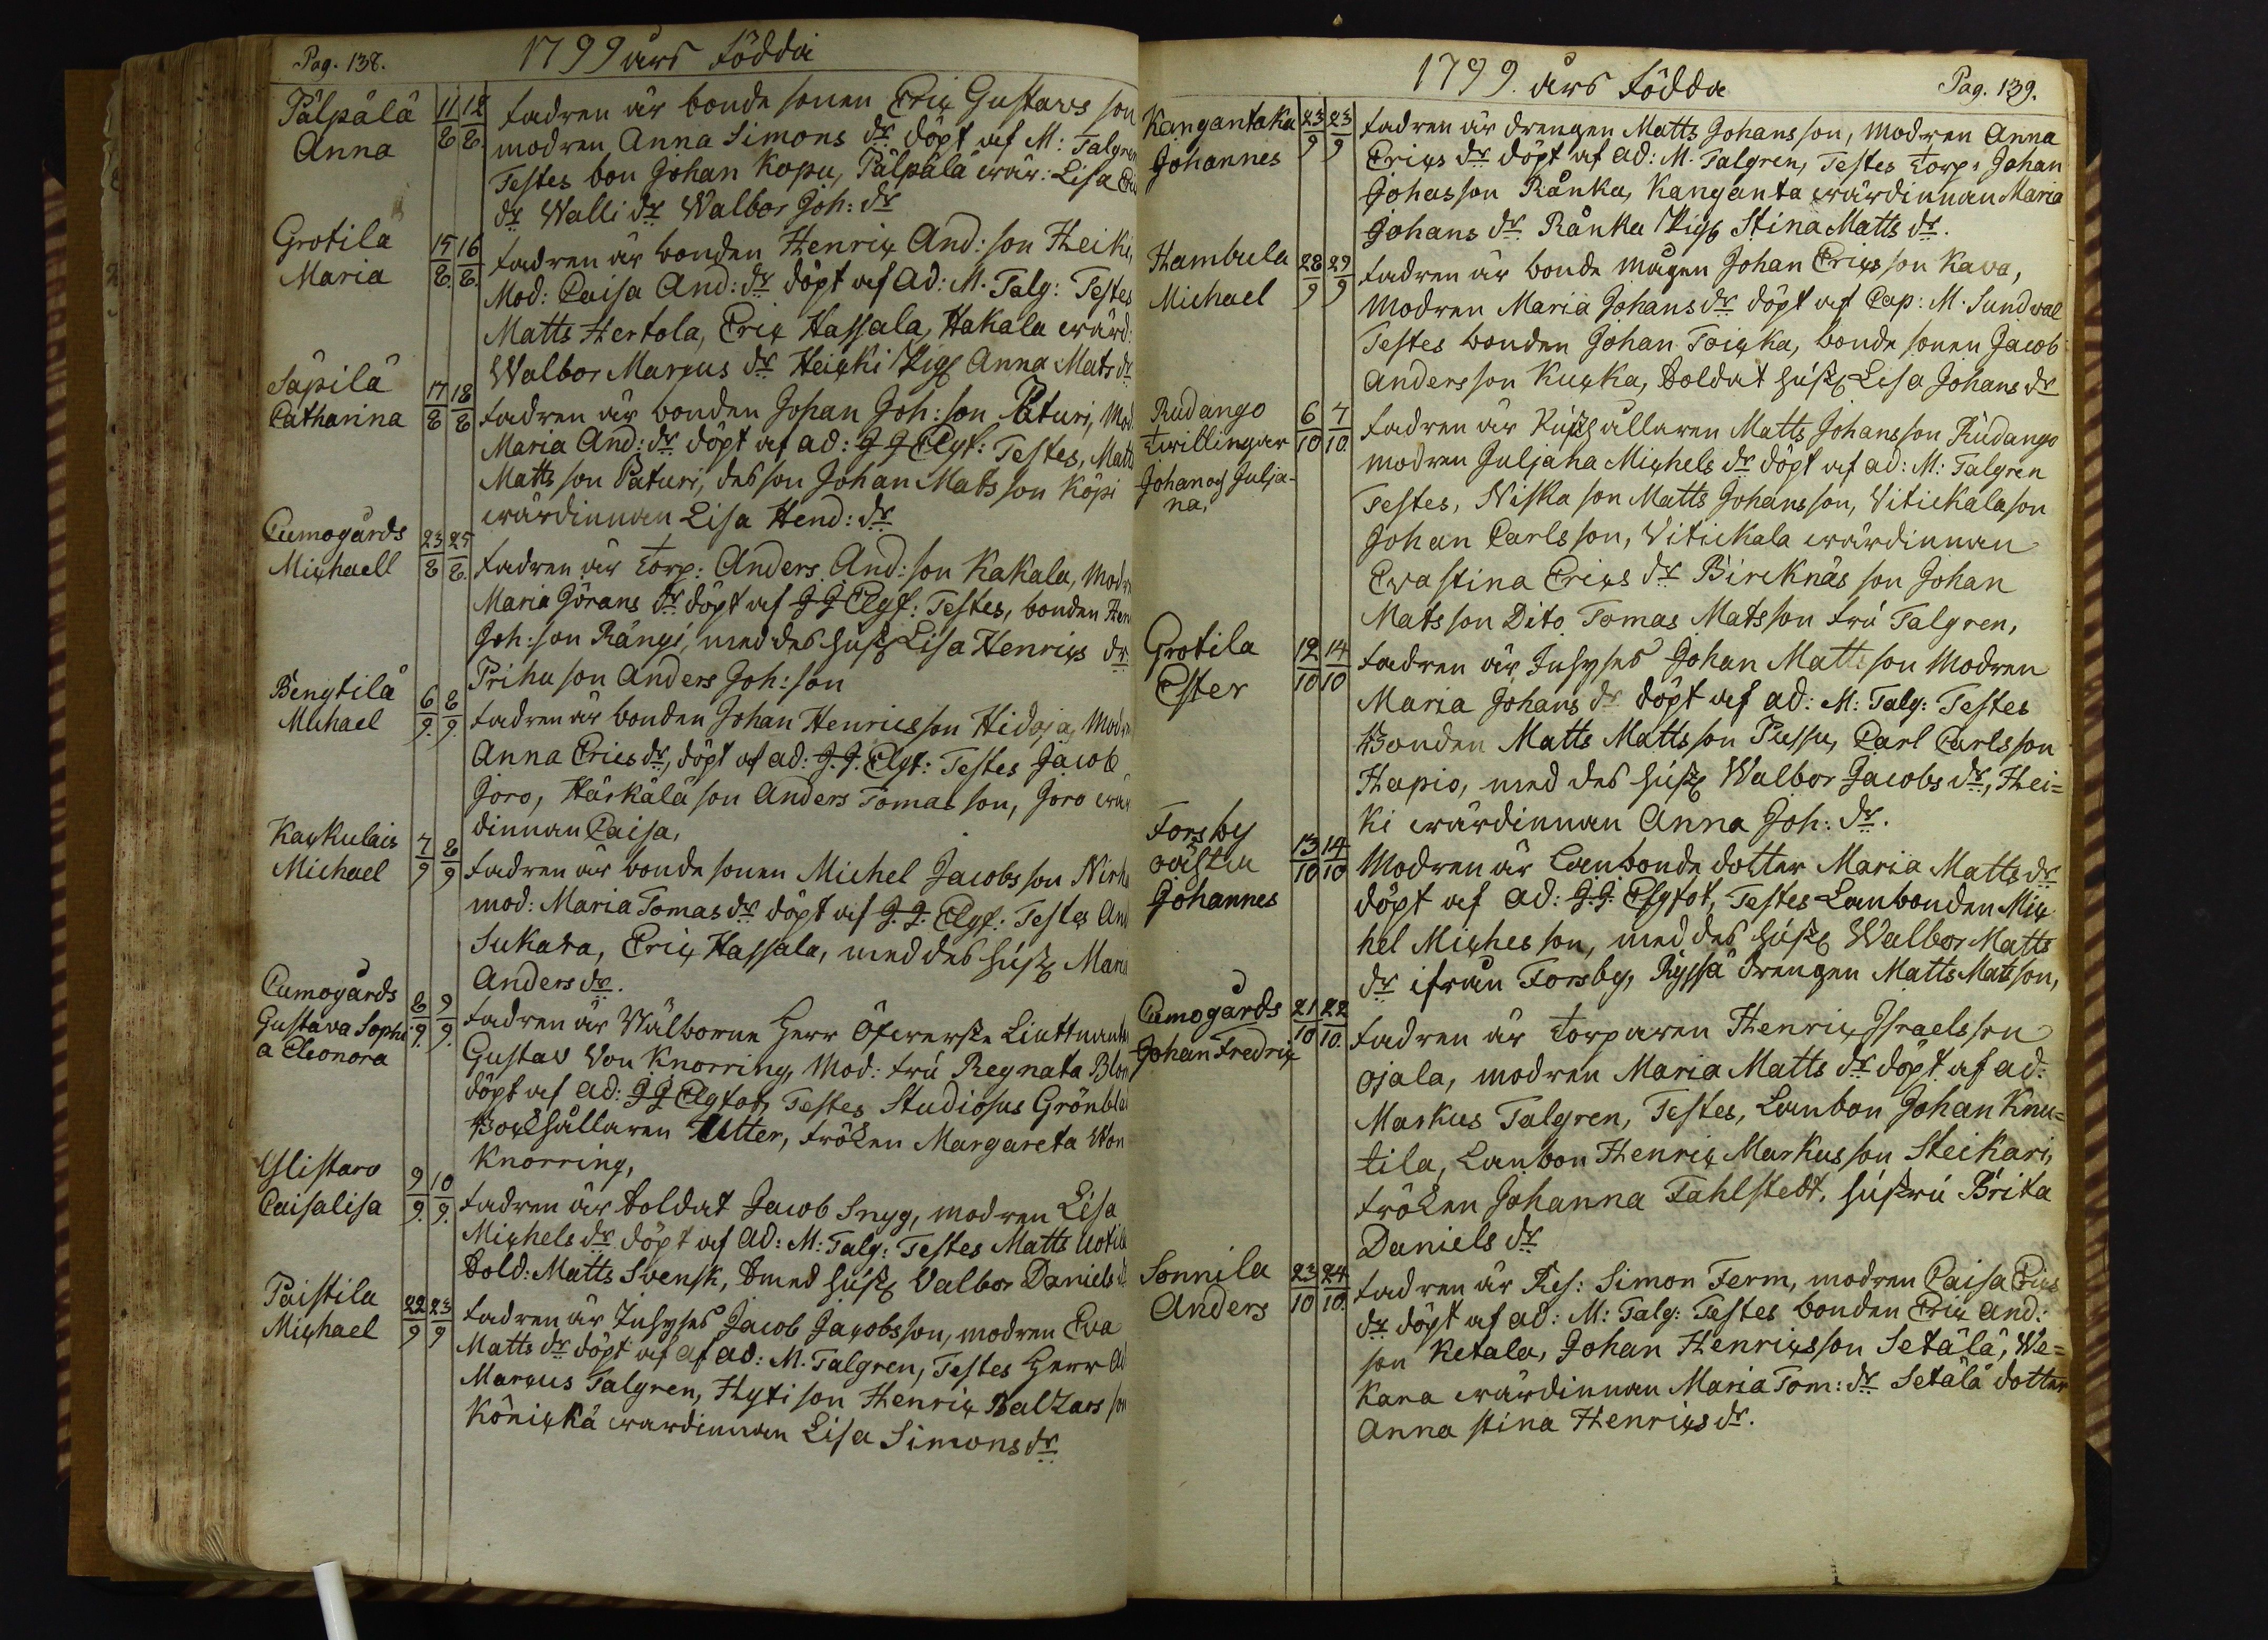 Pag. 138.
1799 års födda
Pälpälä 11/8 12/8 fadren är bonde sonen Eric Gustavs son
Anna modren Anna Simons dr döpt af M: Talgren
Testes bon Johan Kopu, Pälpälä wär: Lisa
dr Walli dr Walbor Joh: dr
Grotila 15/8. 16/8. fadren är bonden Henric And: son Heiki,
Maria Mod: Caisa And: dr döpt af Ad: M. Talg: Testes
Matts Hertola, Eric Hassala, Hakala wärd:
Walbor Marcus dr Heicki Pig Anna Mats dr
Säpilä 17/8 18/8 fadren är bonden Johan Joh: son Paturi, Mod
Catharina Maria And: dr döpt af ad: J J Elgf: Testes, Matts
Matts son Paturi, des son Johan Mats son Köpi
wärdinnan Lisa Hend: dr
Cumogårds 23/8 25/8. fadren är torp: Anders And: son Kakala, Modr
Michaell Maria Görans dr döpt af J J Elgf: Testes, bonden Hen
Joh: son Rängi, med des hust Lisa Henrics dr
Prihu son Anders Joh: son
Bengtilä 6/9. 8/9. fadren är bonden Johan Henricsson Hidoja, Modr
Michael Anna Erics dr, döpt af ad: J. J. Elgf: Testes Jacob
Joro, Härkälä son Anders Tomas son, Joro wär
dinnan Caisa,
Kackulais 7/9 8/9 fadren är bonde sonen Michel Jacobs son
Michael mod: Maria Tomas dr döpt af J. J. Elgf: Testes And
Sukara, Eric Hassala, med des hust Mari
Anders dr.
Cumogårds 8/9. 9/9. fadren är Wälborne Herr Öfwerste Liuttnant
Gustava Sophi Gustav Von Knorring, Mod: fru Regnata Blom
a Eleonora döpt af ad: J J Elgfot, Testes Studiosus Grönbla
Bockhållaren Utter, fröken Margareta Von
Knorring,
Glistaro 9/9. 10/9. fadren är Soldat Jacob Snyg, modren Lisa
Caisalisa Michels dr döpt af Ad: M: Talg: Testes Matts Uotila
Sold: Matts Svensk, med hust Valbor Daniels d
Paistila 22/9 23/9 fadren är Inhyses Jacob Jacobsson, modren Eva
Michael Matts dr döpt af af ad: M. Talgren, Testes Herr Ad
Marcus Talgren, Hyti son Henric Baltzars son
Könickä wardinnan Lisa Simons dr
1799. års födda
Pag. 139.
Kangantaka 23/9 23/9 fadren är drengen Matts Johans son, modren Anna
Johannes Erics dr döpt af ad: M. Talgren, Testes torp: Johan
Johasson Rånka, Kanganta wärdinnan Maria
Johans dr Rånka Pig Stina Matts dr.
Hambula 28/9 29/9 fadren är bonde mågen Johan Erics son Kava,
Michael Modren Maria Johans dr döpt af Cap: M. Sundwal
Testes bonden Johan Toicka, bonde sonen Jacob
Anders son Kucka, Soldat hust Lisa Johans dr
Rudango 6/10 7/10. fadren är Kusshållaren Matts Johans son Rudango
Twillingar modren Juljana Michels dr döpt af ad: M: Talgren
Johan och Julja-
na, Testes, Niska son Matts Johans son, Vitickala son
Johan Carls son, Vitickala wärdinnan
Evastina Erics dr Bircknäs son Johan
Mats son Dito Tomas Matsson fru Talgren,
Grotila 12/10 14/10 fadren är Inhyses Johan Matts son Modren
Ester Maria Johans dr döpt af ad: M: Talg: Testes
Bonden Matts Matts son Pussu, Carl Carls son
Hapio, med des hust Walbor Jacobs dr, Hei=
ki wärdinnan Anna Joh: dr.
Forsby
oäkta 13/10 14/10 Modren är Lanbonde dotter Maria Matts dr
Johannes döpt af ad: J. J. Elgfot, Testes Lanbonden Mic
hel Miches son, med des hust Walbor Matts
dr ifrån Forsby, Ryssä drengen Matts Mats son,
Cumogårds 21/10 22/10. fadren är torparen Henric Israels son
Johan Fredric Ojala, modren Maria Matts dr döpt af ad:
Markus Talgren, Testes, Lanbon Johan Knu=
tila, Lanbon Henric Markus son Steikari,
fröken Johanna Fahlstedt, hustru Brita
Daniels dr
Sonnila 23/10 24/10. fadren är Res: Simon Ferm, modren Caisa Erics
Anders dr döpt af ad: M: Talg: Testes bonden Eric And:
son Ketala, Johan Henrics son Setälä, We=
kara wärdinnan Maria Tom: dr Setälä dotter
Anna stina Henrics dr.